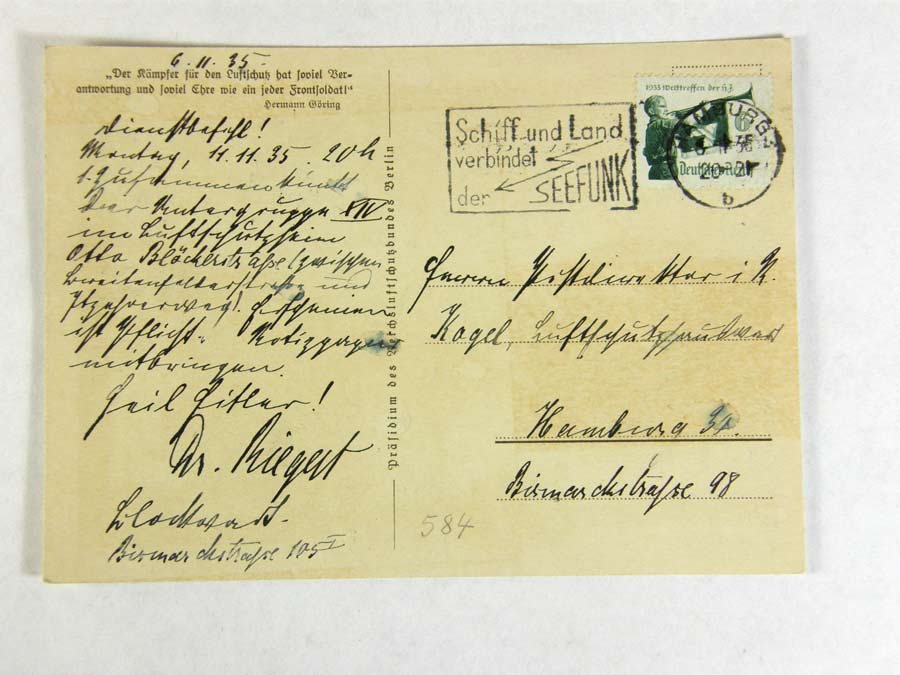 6.11.35.
„Der Kämpfer für den Luftschutz hat soviel Ver-
antwortung und soviel Ehre wie ein jeder Frontsoldat!“
Hermann Göring
Dienstbefehl!
Montag, 11.11.35. 20 h
1. Zusammenkunft
der Untergruppe XIV
im Luftschutzheim
Otto Blöckerstraße (zwischen
Breitenfelderstraße und
Erscheinen
ist Pflicht. Notizpapier
mitbringen.
Heil Hitler!
Dr. Riegert
Blockwart.
Bismarckstraße 105 I
Präsidium des Reichsluftschutzbundes Berlin
Schiff und Land
verbindet
der SEEFUNK
1935 Welttreffen der HJ
6
Deutsches Reich
HAMBURG
b
Herrn Postdirektor i. R.
Kagel, Luftschutzhauswart
Hamburg 30.
Bismarckstraße 98
584